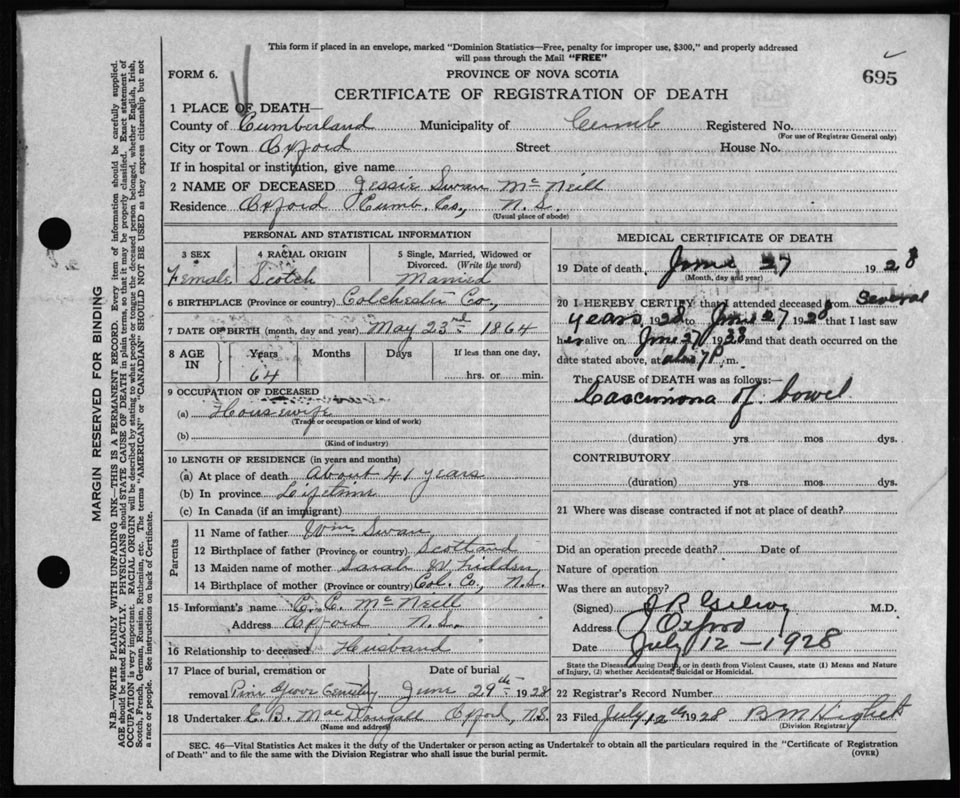 This form if placed in an envelope, marked "Dominion Statistics—Free, penalty for improper use, $300," and properly addressed
will pass through the Mail "FREE"
FORM 6. PROVINCE OF NOVA SCOTIA 695
CERTIFICATE OF REGISTRATION OF DEATH
1 PLACE OF DEATH—
County of Cumberland Municipality of Cumb Registered No.
(For use of Registrar General only)
City or Town Oxford Street House No.
If in hospital or institution, give name
2 NAME OF DECEASED Jessie Swan McNeill
Residence Oxford Cumb. Co., N.S.
(Usual place of abode)
PERSONAL AND STATISTICAL INFORMATION
3 SEX 4 RACIAL ORIGIN 5 Single, Married, Widowed or
Divorced. (Write the word)
Female Scotch Married
6 BIRTHPLACE (Province or country) Colchester Co,
7 DATE OF BIRTH (month, day and year) May 23rd 1864
8 AGE IN Years Months Days If less than one day,
64 hrs. or min.
9 OCCUPATION OF DECEASED
(a) Housewife
(Trade or occupation or kind of work)
(b)
(Kind of industry)
10 LENGTH OF RESIDENCE (in years and months)
(a) At place of death About 41 years
(b) In province Lifetime
(c) In Canada (if an immigrant)
Parents
11 Name of father Wm. Swan
12 Birthplace of father (Province or country) Scotland
13 Maiden name of mother Sarah
14 Birthplace of mother (Province or country) Col. Co., N.S.
15 Informant's name C. C. McNeill
Address Oxford N.S.
16 Relationship to deceased Husband
17 Place of burial, cremation or Date of burial
removal Pine Grove Cemetery June 29th 1928
18 Undertaker E. B. MacDougall Oxford, N.S.
(Name and address)
MEDICAL CERTIFICATE OF DEATH
19 Date of death, June 27 1928
(Month, day and year)
20 I HEREBY CERTIFY that I attended deceased from Several
years 1928 to June 27 1928 that I last saw
her alive on June 27 1928 and that death occurred on the
date stated above, at abt 7 P. m.
The CAUSE of DEATH was as follows:—
Carcinoma of bowel
(duration) yrs. mos. dys.
CONTRIBUTORY
(duration) yrs. mos. dys.
21 Where was disease contracted if not at place of death?
Did an operation precede death? Date of
Nature of operation
Was there an autopsy?
(Signed) J R Gilroy M.D.
Address Oxford
Date July 12 - 1928
State the Disease causing Death, or in death from Violent Causes, state (1) Means and Nature
of Injury, (2) whether Accidental, Suicidal or Homicidal.
22 Registrar's Record Number
23 Filed July 12th 1928 B M
(Division Registrar)
SEC. 46—Vital Statistics Act makes it the duty of the Undertaker or person acting as Undertaker to obtain all the particulars required in the "Certificate of Registration
of Death" and to file the same with the Division Registrar who shall issue the burial permit. (OVER)
MARGIN RESERVED FOR BINDING
N.B.—WRITE PLAINLY WITH UNFADING INK—THIS IS A PERMANENT RECORD. Every item of information should be carefully supplied.
AGE should be stated EXACTLY. PHYSICIANS should STATE CAUSE OF DEATH in plain terms, so that it may be properly classified. Exact statement of
OCCUPATION is very important. RACIAL ORIGIN will be described by stating to what people or tongue the deceased person belonged, whether English, Irish,
Scotch, French, German, Russian, Ruthenian, etc. The terms "AMERICAN" or "CANADIAN" SHOULD NOT BE USED as they express citizenship but not
a race or people. See instructions on back of Certificate.